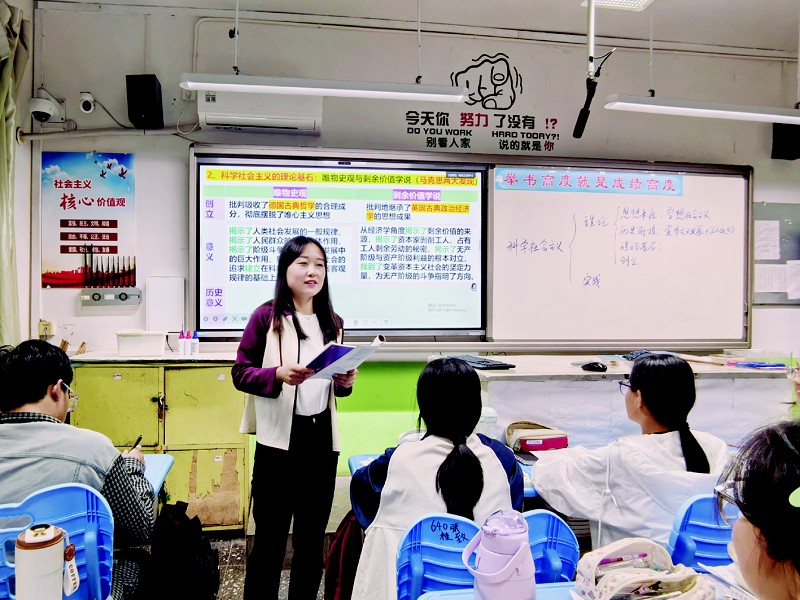 今天你 努力 了没有 !?
DO YOU WORK HARD TODAY?!
别看人家 说的就是你
社会主义
核心价值观
富强、民主、文明、和谐
自由、平等、公正、法治
爱国、敬业、诚信、友善
2、科学社会主义的理论基石：唯物史观与剩余价值学说（马克思两大发现）
唯物史观 剩余价值学说
创立
批判吸收了德国古典哲学的合理成
分，彻底摆脱了唯心主义思想
批判地继承了英国古典政治经济
学的思想成果
意义
揭示了人类社会发展的一般规律，
揭示了人民群众的
揭示了阶级斗争
的巨大作用，
追求建立在科
规律的基础上
从经济学角度揭示了剩余价值的来
源，揭示了资本家剥削工人、占有
工人剩余劳动的秘密，揭示了无产
阶级与资产阶级利益的根本对立，
找到了变革资本主义社会的坚定力
量，为无产阶级的斗争指明了方向。
历史
意义
举书高度就是成绩高度
科学社会主义
理论
实践
理论基石
创立
640张
桂毅